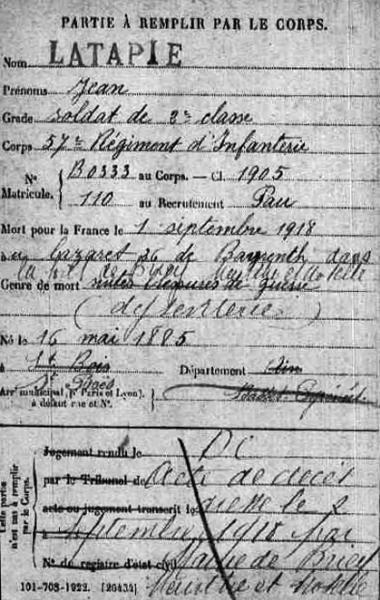 PARTIE À REMPLIR PAR LE CORPS.
Nom LATAPIE
Prénoms Jean
Grade Soldat de 2e classe
Corps 57e Régiment d'Infanterie
N° B0333 au Corps. — Cl. 1905
Matricule. 110 au Recrutement Pau
Mort pour la France le 1 septembre 1918
à lazaret 36 de dans
Genre de mort suites blessures de guerre
(dysenterie)
Né le 16 mai 1885
à St Bois Département
Arr¹ municipal (p¹ Paris et Lyon),
à défaut rue et N°.
Cette partie n'est pas à remplir par le Corps.
Jugement rendu le
par le Tribunal de Acte de décès
acte ou jugement transcrit le dressé le 2
à septembre 1918 par
N° du registre d'état civil Mairie de Briey
101-708-1922. [26434] Meurthe et Moselle